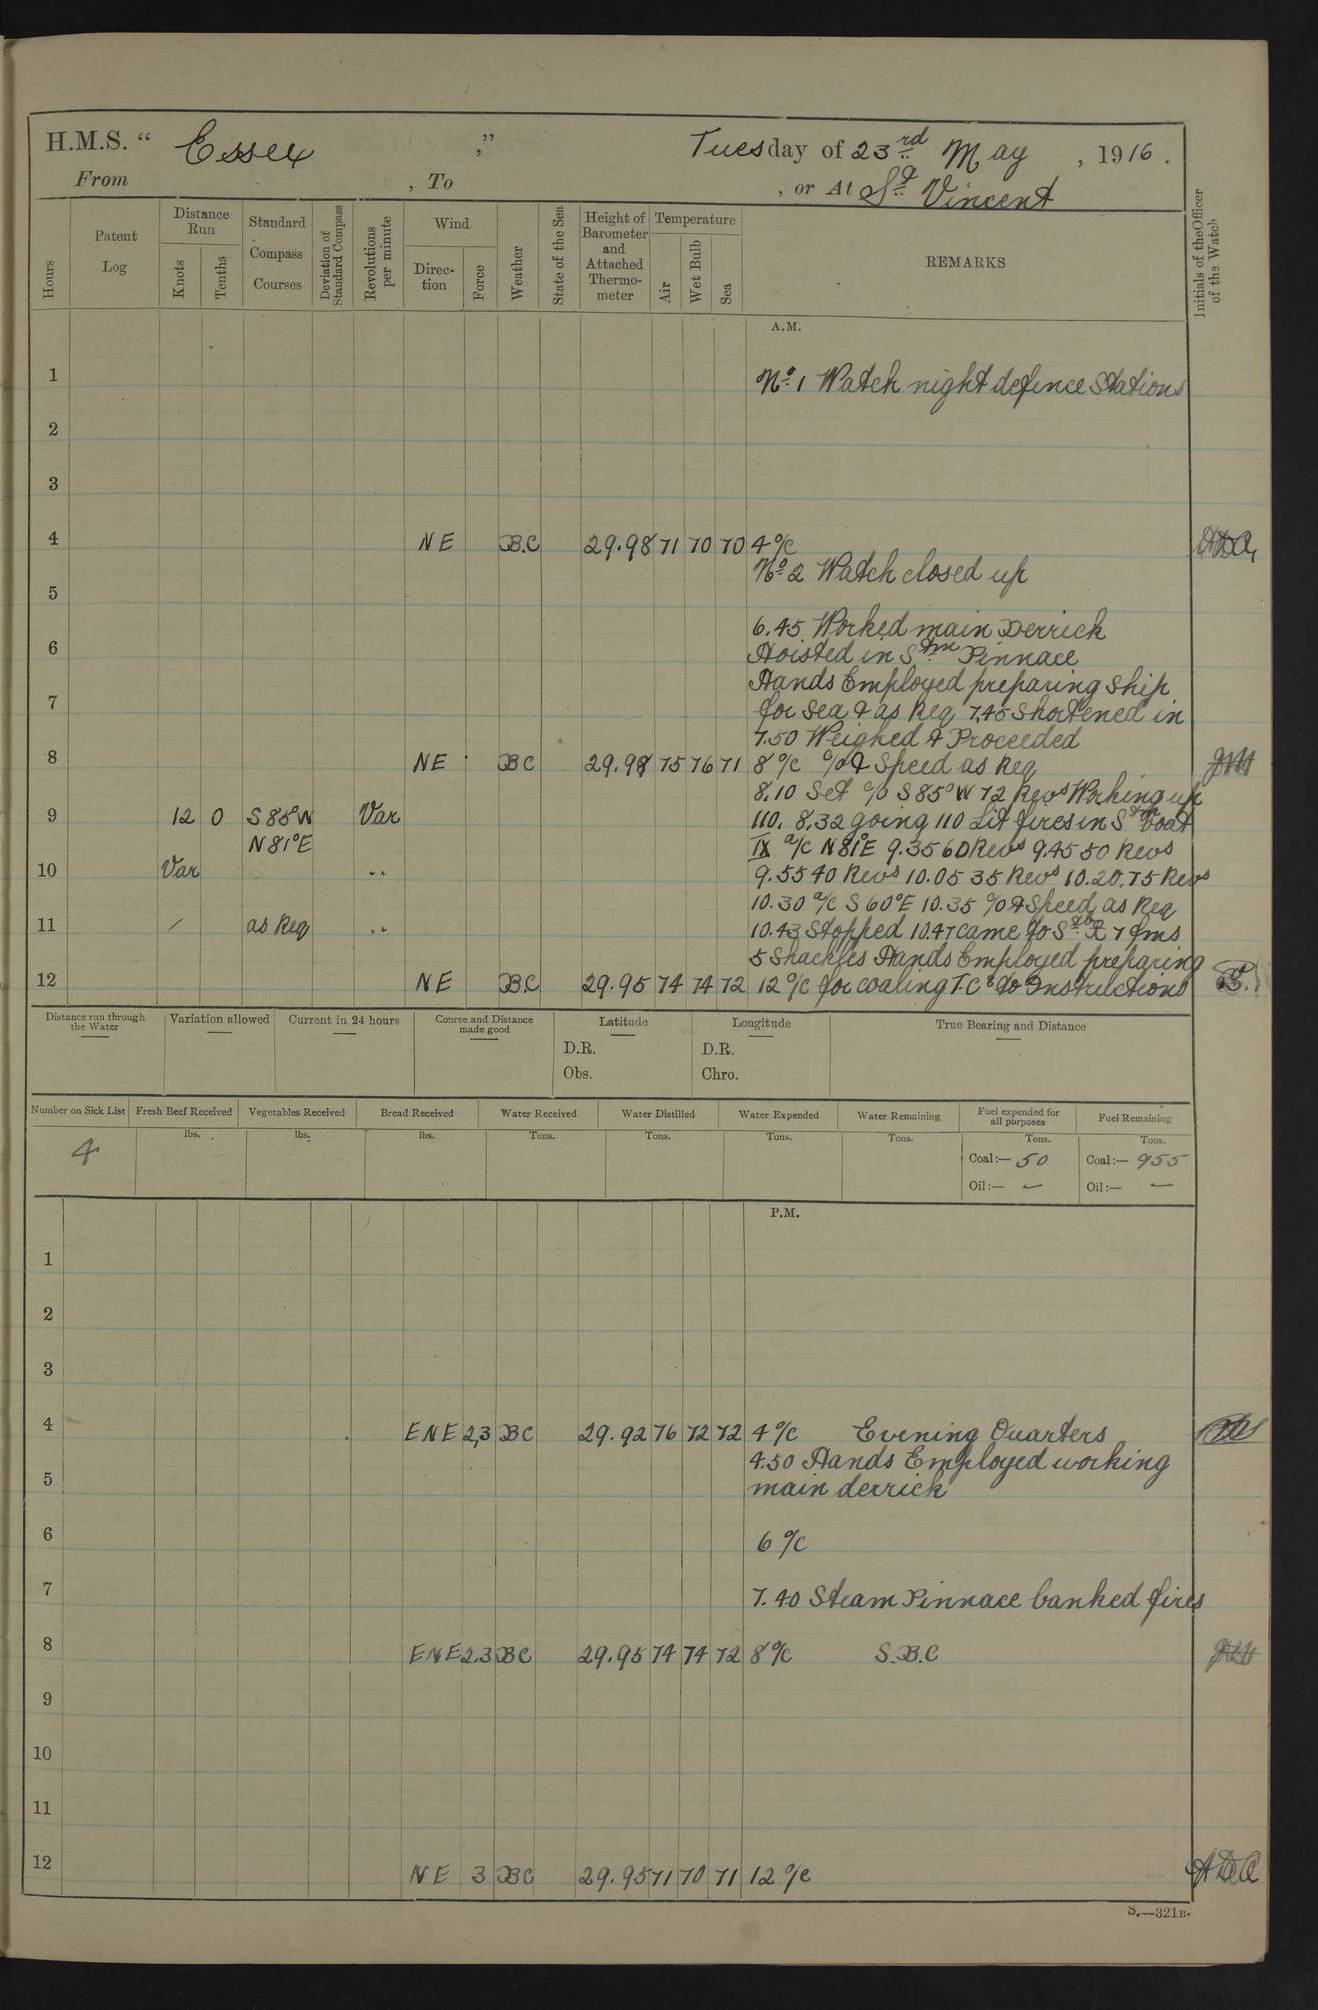 H.M.S. “ Essex ,” Tuesday of 23rd May , 1916.
From , To , or At St Vincent
Hours Patent Log Distance Run Knots Tenths Standard Compass Courses Deviation of Standard Compass Revolutions per minute Wind Direction Force Weather State of the Sea Height of Barometer and Attached Thermometer Temperature Air Wet Bulb Sea REMARKS Initials of the Officer of the Watch
A.M.
1 No. 1 Watch night defence Stations
2
3
4 NE B.C 29.98 71 70 70 4 o/c
No. 2 Watch closed up
5
6.45 Worked main Derrick
6 Hoisted in Stm Pinnace
Hands Employed preparing Ship
7 for Sea & as Req 7,45 Shortened in
7.50 Weighed & Proceeded
8 NE BC 29.98 75 76 71 8 o/c Co & Speed as Req
8.10 Set Co S 85° W 72 Revs Working up
9 12 0 S 85° W Var 110. 8,32 going 110 Lit fires in Stm boat
N 81° E IX a/c N 81° E 9.35 60 Revs 9.45 50 Revs
10 Var " 9.55 40 Revs 10.05 35 Revs 10.20, 75 Revs
10.30 a/c S 60° E 10.35 Co & Speed as Req
11 / as Req " 10.43 Stopped 10.47 came to 7 fms
5 Shackles Hands Employed preparing
12 NE B.C 29.95 74 74 72 12 o/c for coaling T.Cs to Instructions
Distance run through the Water Variation allowed Current in 24 hours Course and Distance made good Latitude Longitude True Bearing and Distance
D.R. D.R.
Obs. Chro.
Number on Sick List Fresh Beef Received Vegetables Received Bread Received Water Received Water Distilled Water Expended Water Remaining Fuel expended for all purposes Fuel Remaining
lbs. lbs. lbs. Tons. Tons. Tons. Tons. Tons. Tons.
4 Coal:— 50 Coal:— 955
Oil:— — Oil:— —
P.M.
1
2
3
4 ENE 2,3 BC 29.92 76 72 72 4 o/c Evening Quarters
4.50 Hands Employed working
5 main derrick
6 6 o/c
7 7.40 Steam Pinnace banked fires
8 ENE 2.3 BC 29.95 74 74 72 8 o/c S.B.C
9
10
11
12 NE 3 BC 29.95 71 70 71 12 o/c
S.—321B.